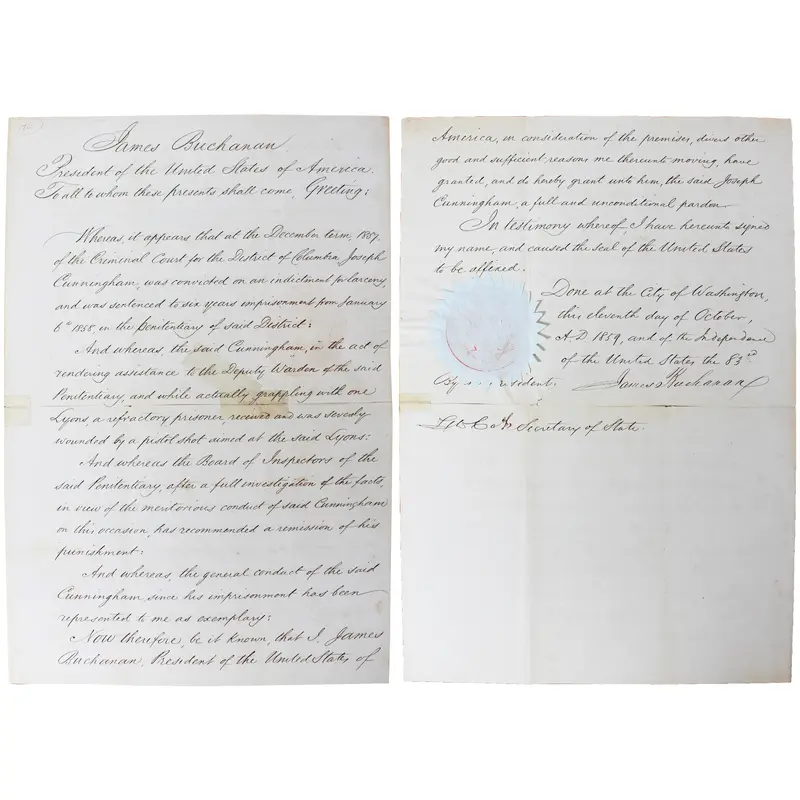 James Buchanan
President of the United States of America.
To all to whom these presents shall come, Greeting:
Whereas, it appears that at the December term, 1857,
of the Criminal Court for the District of Columbia, Joseph
Cunningham, was convicted on an indictment for larceny,
and was sentenced to six years imprisonment from January
6th 1858, in the Penitentiary of said District:
And whereas, the said Cunningham, in the act of
rendering assistance to the Deputy Warden of the said
Penitentiary, and while actually grappling with one
Lyons, a refractory prisoner, received and was severely
wounded by a pistol shot aimed at the said Lyons:
And whereas the Board of Inspectors of the
said Penitentiary, after a full investigation of the facts,
in view of the meritorious conduct of said Cunningham
on this occasion, has recommended a remission of his
punishment:
And whereas, the general conduct of the said
Cunningham, since his imprisonment has been
represented to me as exemplary:
Now therefore, be it known, that I, James
Buchanan, President of the United States of
America, in consideration of the premises, divers other
good and sufficient reasons me thereunto moving, have
granted, and do hereby grant unto him, the said Joseph
Cunningham, a full and unconditional pardon.
In testimony whereof, I have hereunto signed
my name, and caused the Seal of the United States
to be affixed.
Done at the City of Washington,
this eleventh day of October,
A.D. 1859, and of the Independence
of the United States the 83rd
By resident:
James Buchanan
Secretary of State.